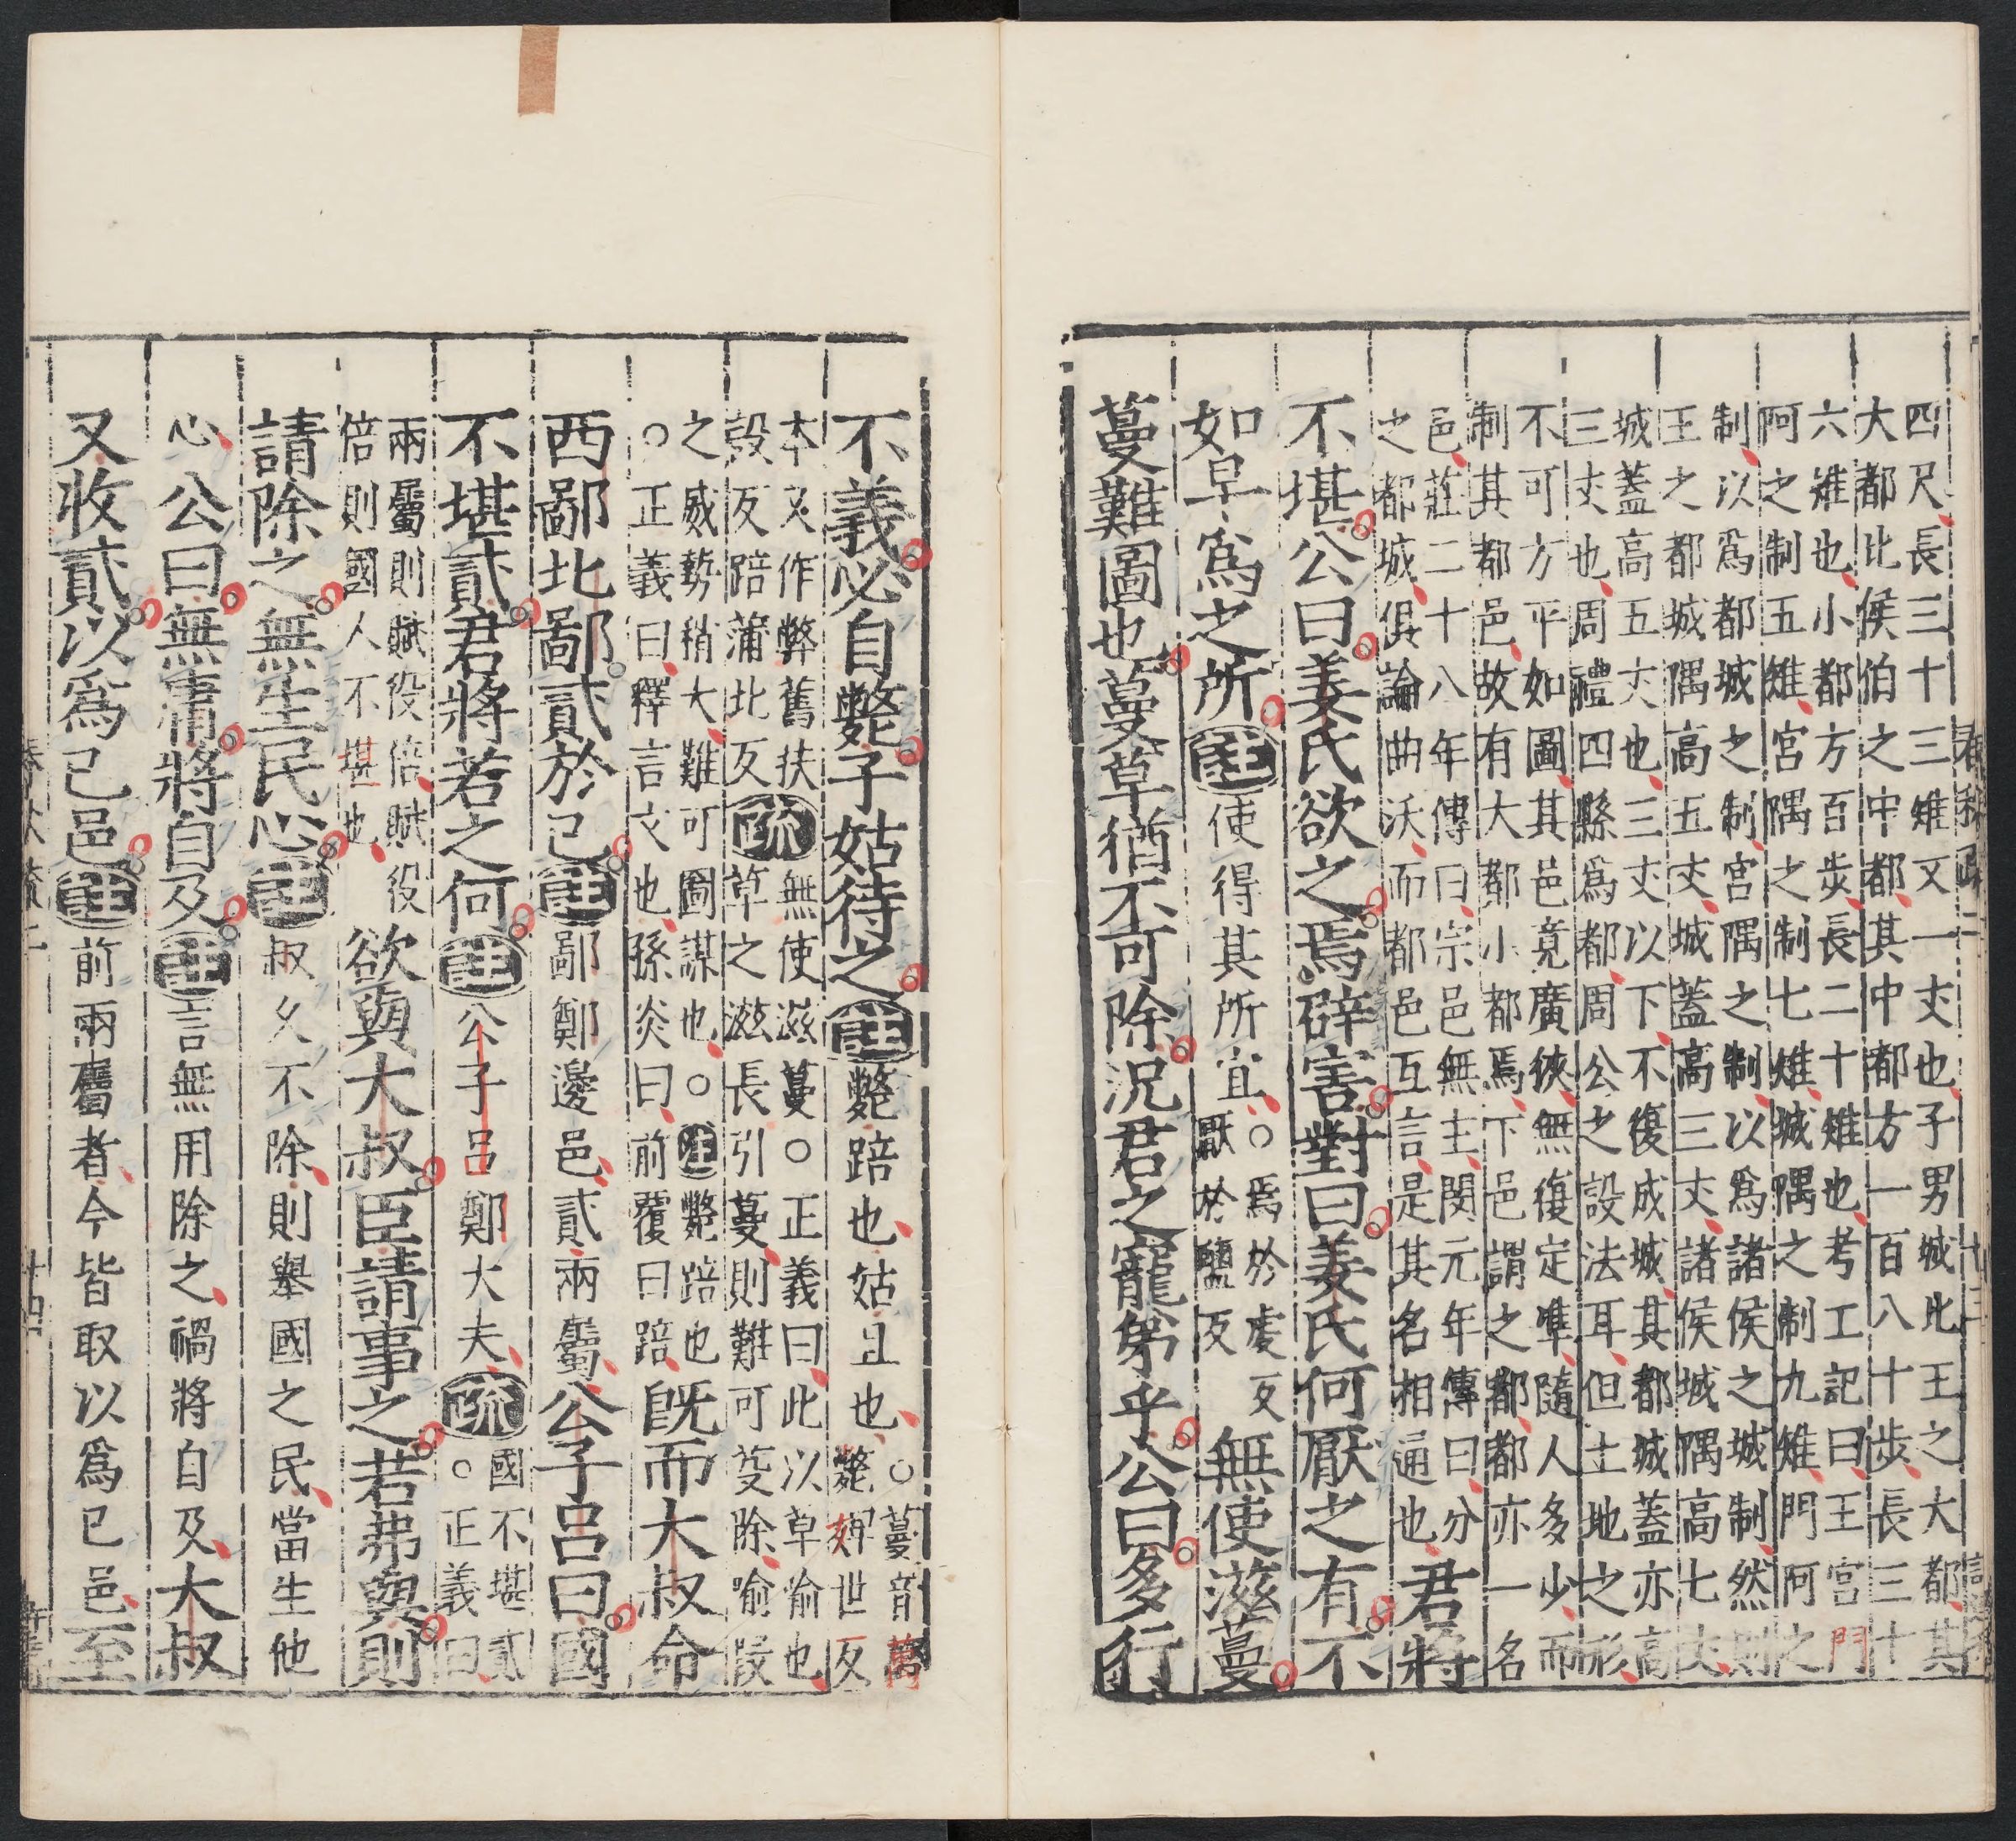 四尺長三十三雉又一丈也子男城比王之大都其
大都比侯伯之中都其中都方一百八十步長三十
六雉也小都方百步長二十雉也考工記曰王宮門
阿之制五雉宮隅之制七雉城隅之制九雉門阿之
制以爲都城之制宮隅之制以爲諸侯之城制然則
王之都城隅高五丈城蓋高三丈諸侯城隅高七丈
城蓋高五丈也三丈以下不復成城其都城蓋亦高
三丈也周禮四縣爲都周公之設法耳但土地之形
不可方平如圖其邑竟廣狹無復定準隨人多少而
制其都邑故有大都小都焉下邑謂之都都亦一名
邑莊二十八年傳曰宗邑無主閔元年傳曰分
之都城俱論曲沃而都邑互言是其名相通也
君將
不堪公曰姜氏欲之焉辟害對曰姜氏何厭之有不
如早爲之所註使得其所宜○焉於虔反
厭於鹽反
無使滋蔓
蔓難圖也蔓草猶不可除況君之寵弟乎公曰多行
不義必自斃子姑待之註斃踣也姑且也○蔓音萬
斃婢世反
本又作弊舊扶
設反踣蒲北反疏無使滋蔓○正義曰此以草喻也
草之滋長引蔓則難可芟除喻段
之威勢稍大難可圖謀也○註斃踣也
○正義曰釋言文也孫炎曰前覆曰踣
既而大叔命
西鄙北鄙貳於己註鄙鄭邊邑貳兩屬公子呂曰國
不堪貳君將若之何註公子呂鄭大夫疏國不堪貳
○正義曰
兩屬則賦役倍賦役
倍則國人不堪也
欲與大叔臣請事之若弗與則
請除之無生民心註叔久不除則舉國之民當生他
心公曰無庸將自及註言無用除之禍將自及大叔
又收貳以爲己邑註前兩屬者今皆取以爲己邑至